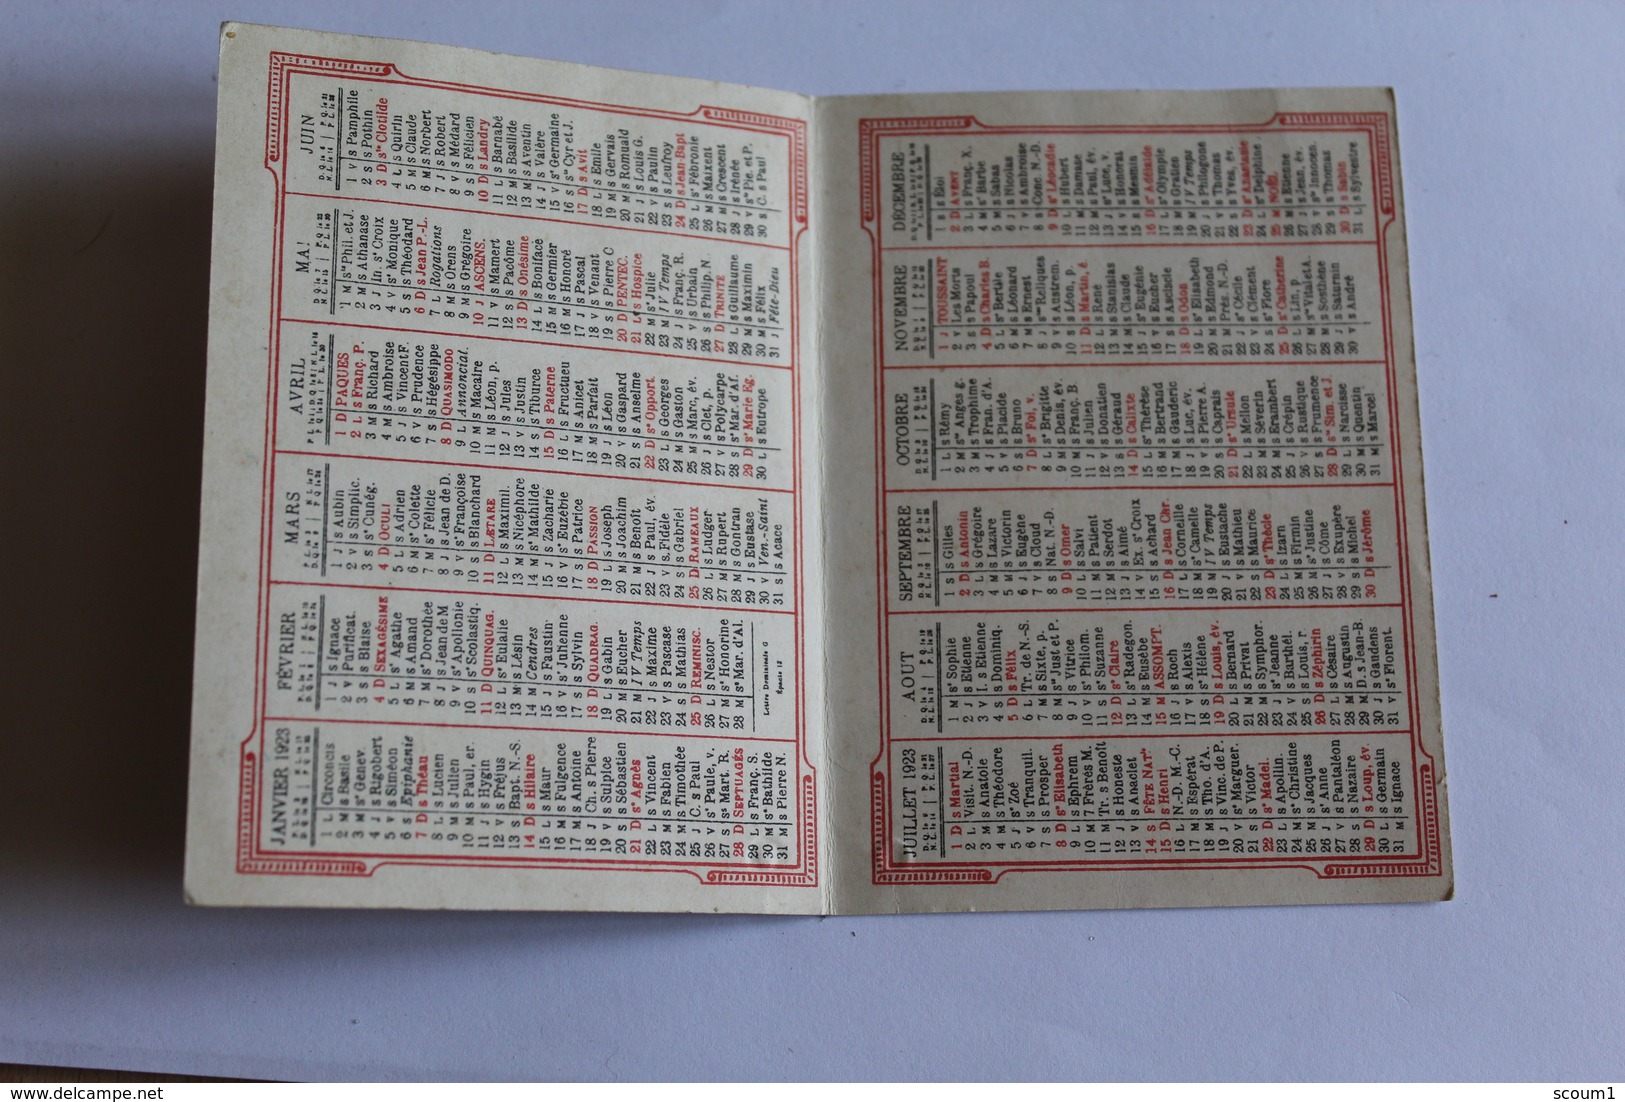 JANVIER 1923
1 L Circoncis
2 M s Basile
3 M se Genev.
4 J s Rigobert
5 V s Siméon
6 S Epiphanie
7 D s Théau
8 L s Lucien
9 M s Julien
10 M s Paul, er.
11 J s Hygin
12 V s Fréjus
13 S Bapt. N.-S.
14 D s Hilaire
15 L s Maur
16 M s Fulgence
17 M s Antoine
18 J Ch. s Pierre
19 V s Sulpice
20 S s Sébastien
21 D se Agnès
22 L s Vincent
23 M s Fabien
24 M s Timothée
25 J C. s Paul
26 V se Paule, v.
27 S se Mart. R.
28 D SEPTUAGÉS
29 L s Franç. S.
30 M se Bathilde
31 M s Pierre N.
FÉVRIER
1 J s Ignace
2 V Purificat.
3 S s Blaise
4 D SEXAGÉSIME
5 L se Agathe
6 M s Amand
7 M se Dorothée
8 J s Jean de M
9 V se Apollonie
10 S se Scholastiq.
11 D QUINQUAG.
12 L se Eulalie
13 M s Lésin
14 M Cendres
15 J s Faustin
16 V se Julienne
17 S s Sylvin
18 D QUADRAG.
19 L s Gabin
20 M s Eucher
21 M IV Temps
22 J s Maxime
23 V s Pascase
24 S s Mathias
25 D REMINISC.
26 L s Nestor
27 M se Honorine
28 M se Mar. d'Al.
Lettre Dominicale G
Epacte 12
MARS
1 J s Aubin
2 V s Simplic.
3 S se Cunég.
4 D OCULI
5 L s Adrien
6 M se Colette
7 M se Félicie
8 J s Jean de D.
9 V se Françoise
10 S s Blanchard
11 D LÆTARE
12 L s Maximil.
13 M s Nicéphore
14 M se Mathilde
15 J s Zacharie
16 V se Euzébie
17 S s Patrice
18 D PASSION
19 L s Joseph
20 M s Joachim
21 M s Benoît
22 J s Paul, év.
23 V s. Fidèle
24 S s Gabriel
25 D RAMEAUX
26 L s Ludger
27 M s Rupert
28 M s Gontran
29 J s Eustase
30 V Ven.-Saint
31 S s Acace
AVRIL
1 D PAQUES
2 L s Franç. P.
3 M s Richard
4 M s Ambroise
5 J s Vincent F.
6 V s Prudence
7 S s Hégésippe
8 D QUASIMODO
9 L Annonciat.
10 M s Macaire
11 M s Léon, p.
12 J s Jules
13 V s Justin
14 S s Tiburce
15 D s Paterne
16 L s Fructueu
17 M s Anicet
18 M s Parfait
19 J s Léon
20 V s Gaspard
21 S s Anselme
22 D se Opport.
23 L s Georges
24 M s Gaston
25 M s Marc, év.
26 J s Clet, p.
27 V s Polycarpe
28 S se Mar. d'Af.
29 D se Marie Eg.
30 L s Eutrope
MAI
1 M ss Phil. et J.
2 M s Athanase
3 J In. se Croix
4 V se Monique
5 S s Théodard
6 D s Jean P.-L.
7 L Rogations
8 M s Orens
9 M s Grégoire
10 J ASCENS.
11 V s Mamert
12 S s Pacôme
13 D s Onésime
14 L s Boniface
15 M s Germier
16 M s Honoré
17 J s Pascal
18 V s Venant
19 S s Pierre C
20 D PENTEC.
21 L s Hospice
22 M se Julie
23 M IV Temps
24 J s Franç. R.
25 V s Urbain
26 S s Philip. N.
27 D TRINITÉ
28 L s Guillaume
29 M s Maximin
30 M s Félix
31 J Fête-Dieu
JUIN
1 V s Pamphile
2 S s Pothin
3 D se Clotilde
4 L s Quirin
5 M s Claude
6 M s Norbert
7 J s Robert
8 V s Médard
9 S s Félicien
10 D s Landry
11 L s Barnabé
12 M s Basilide
13 M s Aventin
14 J s Valère
15 V se Germaine
16 S ss Cyr et J.
17 D s Avit
18 L s Emile
19 M s Gervais
20 M s Romuald
21 J s Louis G.
22 V s Paulin
23 S s Leufroy
24 D s Jean-Bapt
25 L se Fébronie
26 M s Maixent
27 M s Crescent
28 J s Irénée
29 V ss Pie. et P.
30 S C. s Paul
JUILLET 1923
1 D s Martial
2 L Visit. N.-D.
3 M s Anatole
4 M s Théodore
5 J se Zoé
6 V s Tranquil.
7 S s Prosper
8 D se Elisabeth
9 L s Ephrem
10 M 7 Frères M.
11 M Tr. s Benoît
12 J s Honeste
13 V s Anaclet
14 S FÊTE NATle
15 D s Henri
16 L N.-D. M.-C.
17 M s Espérat
18 M s Tho. d'A.
19 J s Vinc. de P.
20 V se Marguer.
21 S s Victor
22 D se Madel.
23 L s Apollin.
24 M se Christine
25 M s Jacques
26 J se Anne
27 V s Pantaléon
28 S s Nazaire
29 D s Loup, év.
30 L s Germain
31 M s Ignace
AOUT
1 M se Sophie
2 J s Etienne
3 V I. s Etienne
4 S s Dominiq.
5 D s Félix
6 L Tr. de N.-S.
7 M s Sixte, p.
8 M s Just et P.
9 J s Vitrice
10 V se Philom.
11 S se Suzanne
12 D se Claire
13 L se Radegon.
14 M s Eusèbe
15 M ASSOMPT.
16 J s Roch
17 V s Alexis
18 S se Hélène
19 D s Louis, év.
20 L s Bernard
21 M s Privat
22 M s Symphor.
23 J se Jeanne
24 V s Barthél.
25 S s Louis, r.
26 D s Zéphirin
27 L s Césaire
28 M s Augustin
29 M D. s Jean-B.
30 J s Gaudens
31 V se Florent.
SEPTEMBRE
1 S s Gilles
2 D s Antonin
3 L s Grégoire
4 M s Lazare
5 M s Victorin
6 J s Eugène
7 V s Cloud
8 S Nat. N.-D.
9 D s Omer
10 L s Salvi
11 M s Patient
12 M s Serdot
13 J s Aimé
14 V Ex. se Croix
15 S s Achard
16 D s Jean Car.
17 L s Corneille
18 M se Camelle
19 M IV Temps
20 J s Eustache
21 V s Mathieu
22 S s Maurice
23 D se Thècle
24 L s Izarn
25 M s Firmin
26 M se Justine
27 J s Côme
28 V s Exupère
29 S s Michel
30 D s Jérôme
OCTOBRE
1 L s Rémy
2 M ss Anges g.
3 M s Trophime
4 J s Fran. d'A.
5 V s Placide
6 S s Bruno
7 D se Foi, v.
8 L se Brigitte
9 M s Denis, év.
10 M s Franç. B.
11 J s Julien
12 V s Donatien
13 S s Géraud
14 D s Calixte
15 L se Thérèse
16 M s Bertrand
17 M s Gauderic
18 J s Luc, év.
19 V s Pierre A.
20 S s Caprais
21 D se Ursule
22 L s Mellon
23 M s Séverin
24 M s Erambert
25 J s Crépin
26 V s Rustique
27 S s Frumence
28 D ss Sim. et J.
29 L s Narcisse
30 M s Quentin
31 M s Marcel
NOVEMBRE
1 J TOUSSAINT
2 V Les Morts
3 S s Papoul
4 D s Charles B.
5 L s Bertile
6 M s Léonard
7 M s Ernest
8 J stes Reliques
9 V s Austrem.
10 S s Léon, p.
11 D s Martin, é.
12 L s René
13 M s Stanislas
14 M s Claude
15 J s Eugénie
16 V s Eucher
17 S s Asciscle
18 D s Odon
19 L se Elisabeth
20 M s Edmond
21 M Prés. N.-D.
22 J se Cécile
23 V s Clément
24 S se Flore
25 D se Catherine
26 L s Lin, p.
27 M ss Vital et A.
28 M s Sosthène
29 J s Saturnin
30 V s André
DÉCEMBRE
1 S s Éloi
2 D AVENT
3 L s Franç. X.
4 M se Barbe
5 M s Sabas
6 J s Nicolas
7 V s Ambroise
8 S Conc. N.-D.
9 D se Léocadie
10 L s Hubert
11 M s Damase
12 M s Paul, év.
13 J se Luce, v.
14 V s Honorat
15 S s Mesmin
16 D se Adélaïde
17 L se Olympie
18 M s Gratien
19 M IV Temps
20 J s Philogone
21 V s Thomas
22 S s Yves, év.
23 D se Anastasie
24 L se Delphine
25 M NOËL
26 M s Etienne
27 J s Jean, év.
28 V ss Innocen.
29 S s Thomas
30 D s Sabin
31 L s Sylvestre
scoum1